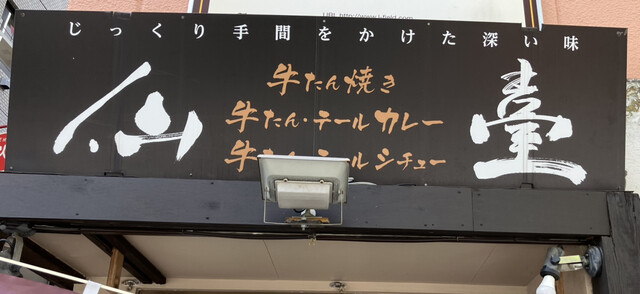 URL http://www.t-field.com
じっくり手間をかけた深い味
仙臺
牛たん焼き
牛たん・テールカレー
牛たん・テールシチュー